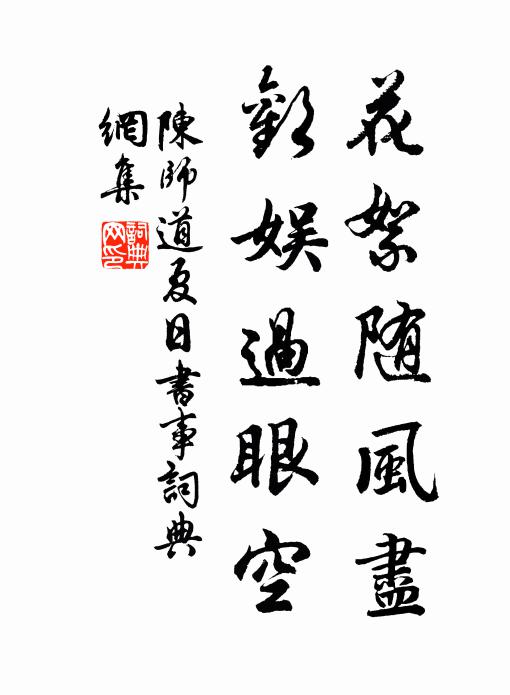 花絮随風盡
歡娛過眼空
陳師道夏日書事詞典
網集
詞典
网印